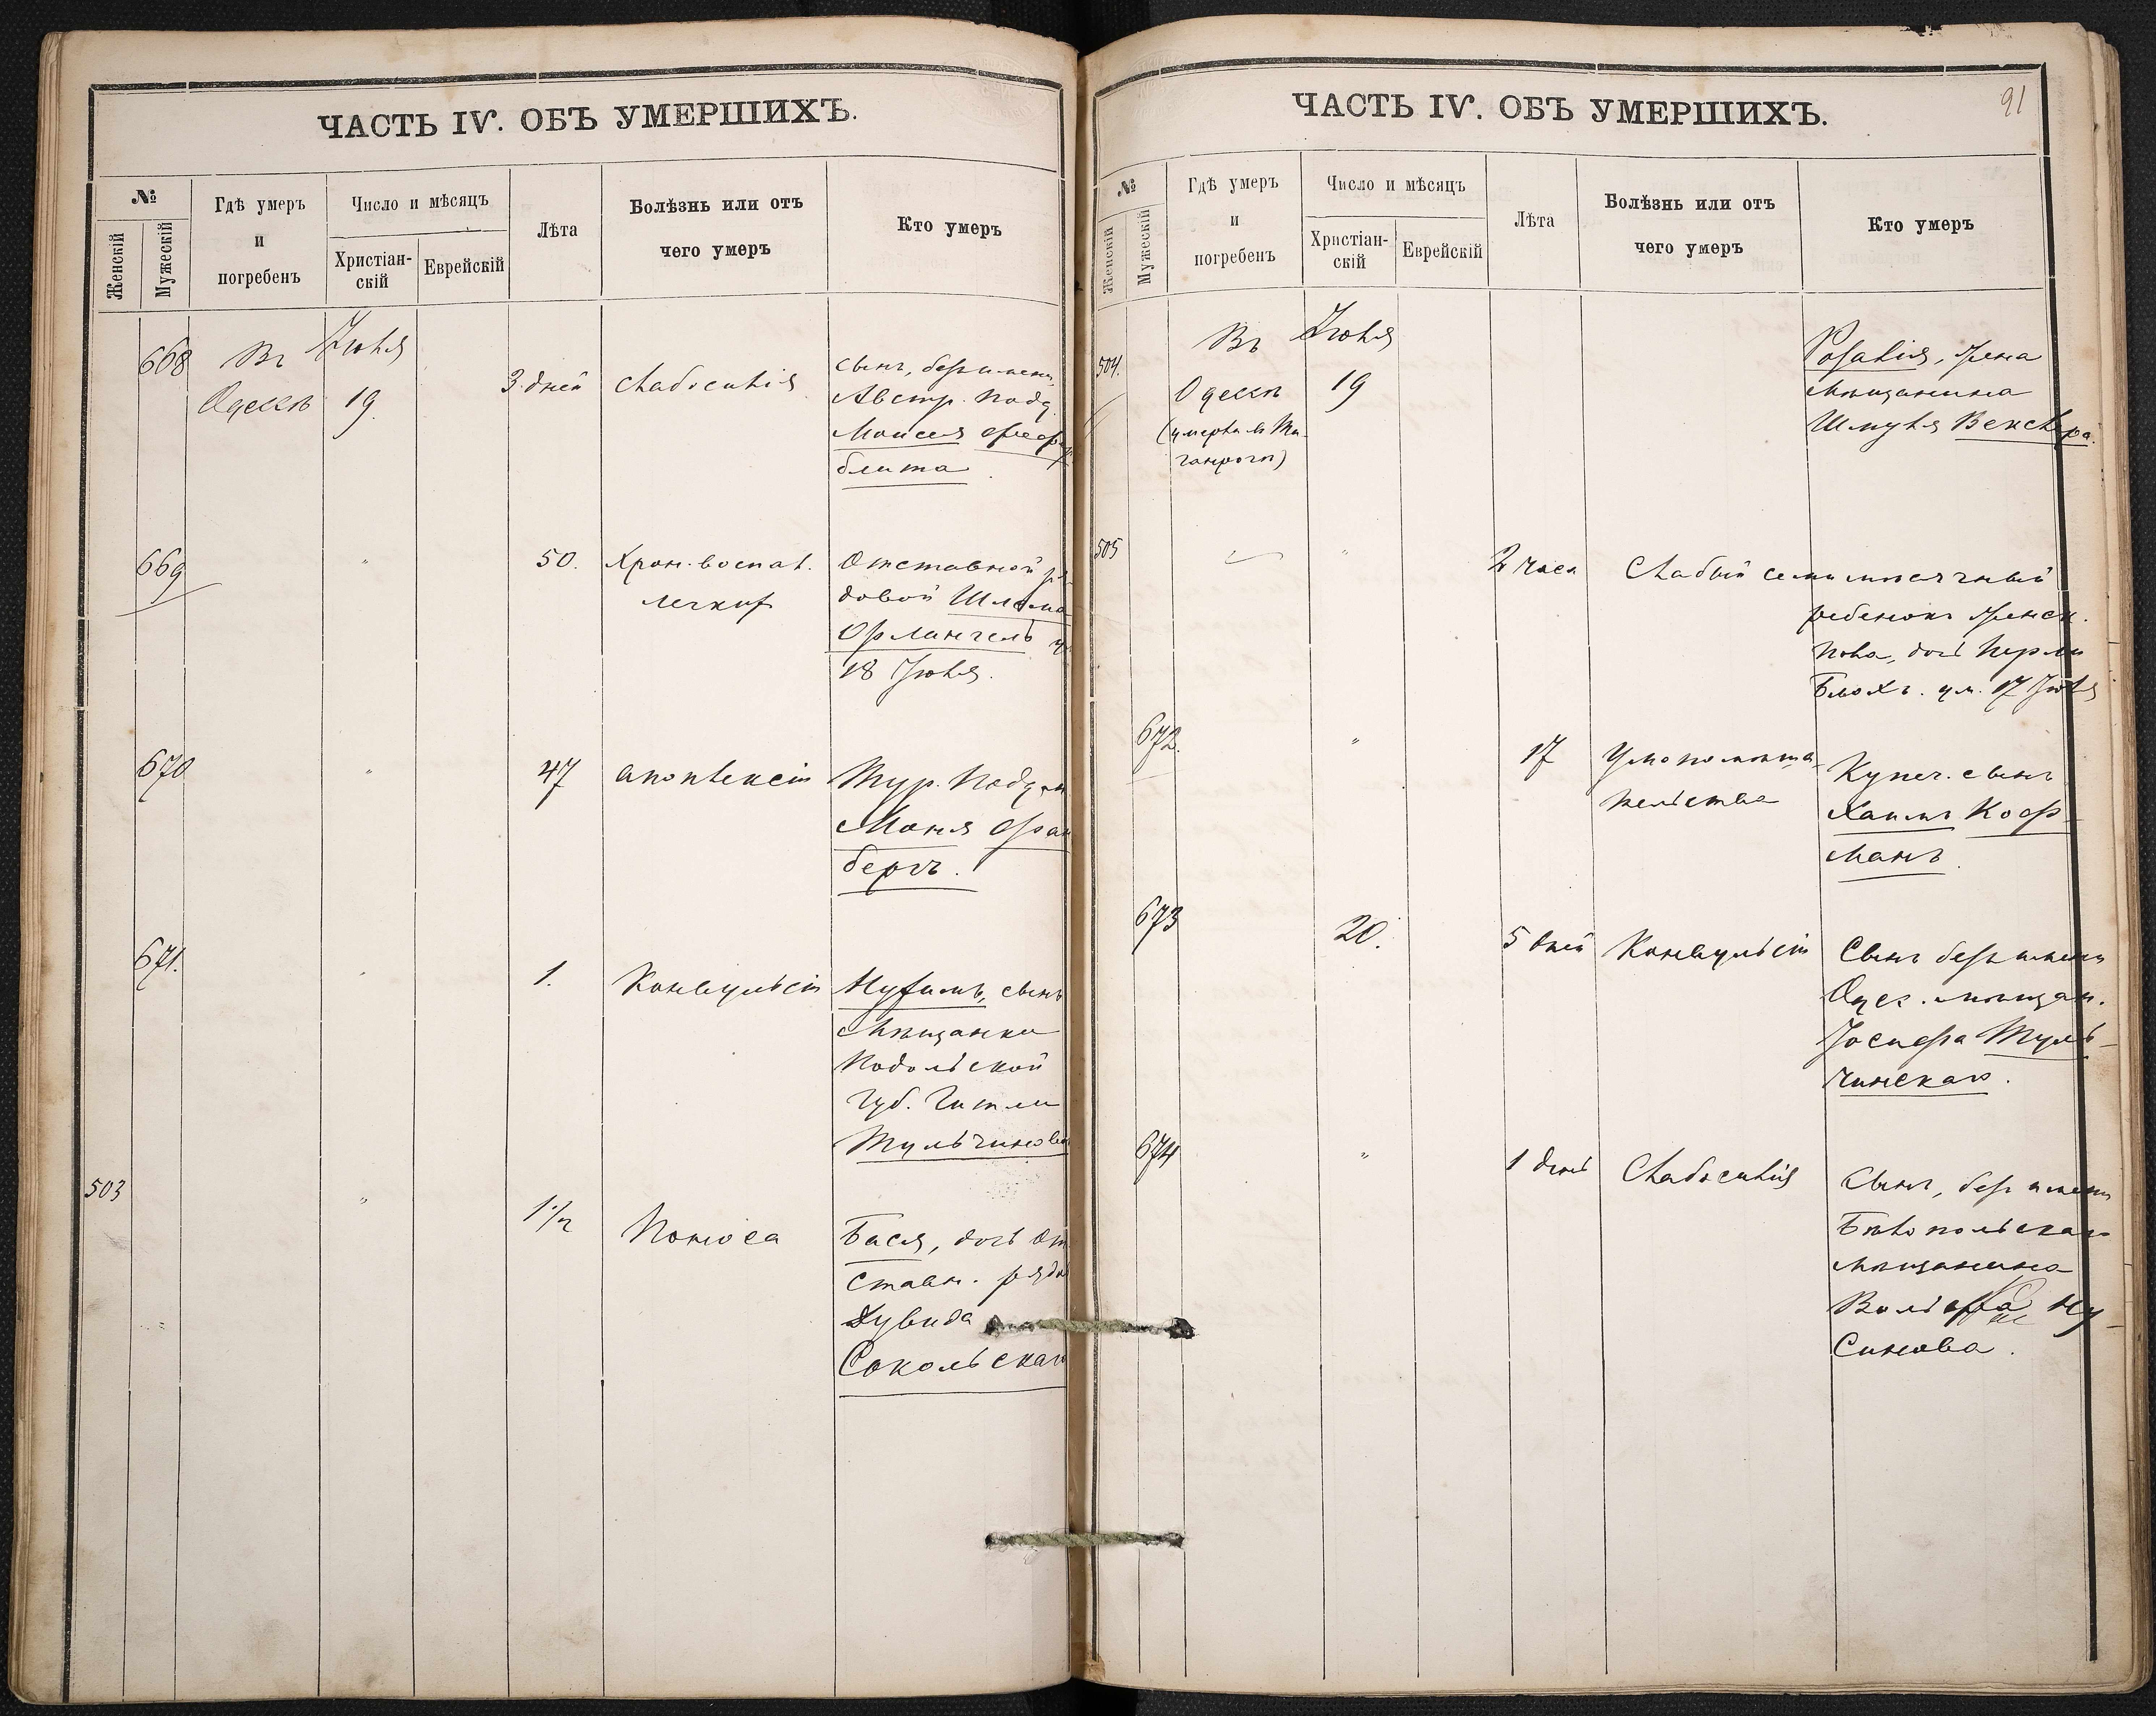 ЧАСТЬ IV. ОБЪ УМЕРШИХЪ.
№
Женскій
Мужескій
Гдѣ умеръ
и
погребенъ
Число и мѣсяцъ
Христіан-
скій
Еврейскій
Лѣта
Болѣзнь или отъ
чего умеръ
Кто умеръ
668
Въ
Одессѣ
Іюля
19
3 дней
слабосилія
сынъ, безъ имени,
Австр. подд.
Моисея
блита
669
"
50.
Хрон. воспал.
легкихъ
Отставной ря-
довой Шлема
18 Іюля.
670
"
47
апоплексіи
Тур. Подд.
Моня
бергъ.
671.
"
1.
Конвульсіи
Нухимъ, сынъ
мѣщанки
Подольской
Губ. Гитли
Тульчинской
503
"
1 1/2
Поноса
Бася, дочь от-
ставн. рядов.
Дувида
Сокольскаго
ЧАСТЬ IV. ОБЪ УМЕРШИХЪ.
91
№
Женскій
Мужескій
Гдѣ умеръ
и
погребенъ
Число и мѣсяцъ
Христіан-
скій
Еврейскій
Лѣта
Болѣзнь или отъ
чего умеръ
Кто умеръ
504.
Въ
Одессѣ
(умерла въ Та-
ганрогѣ)
Іюля
19
Розалія, жена
мѣщанина
Шмуля Векслера.
505
"
2 часа
Слабый семимѣсячный
ребенокъ женск.
пола, дочь Перли
Блохъ. ум. 17 Іюля
672.
"
17
Умопомѣша-
тельства
Купеч. сынъ
Хаимъ Коф-
манъ.
673
20.
5 дней
Конвульсіи
Сынъ безъ имени
Одес. мѣщан.
Іосифа Туль-
чинскаго.
674
"
1 день
Слабосилія
Сынъ, безъ имени
Бѣлопольскаго
мѣщанина
Вольфа Ну-
синова.